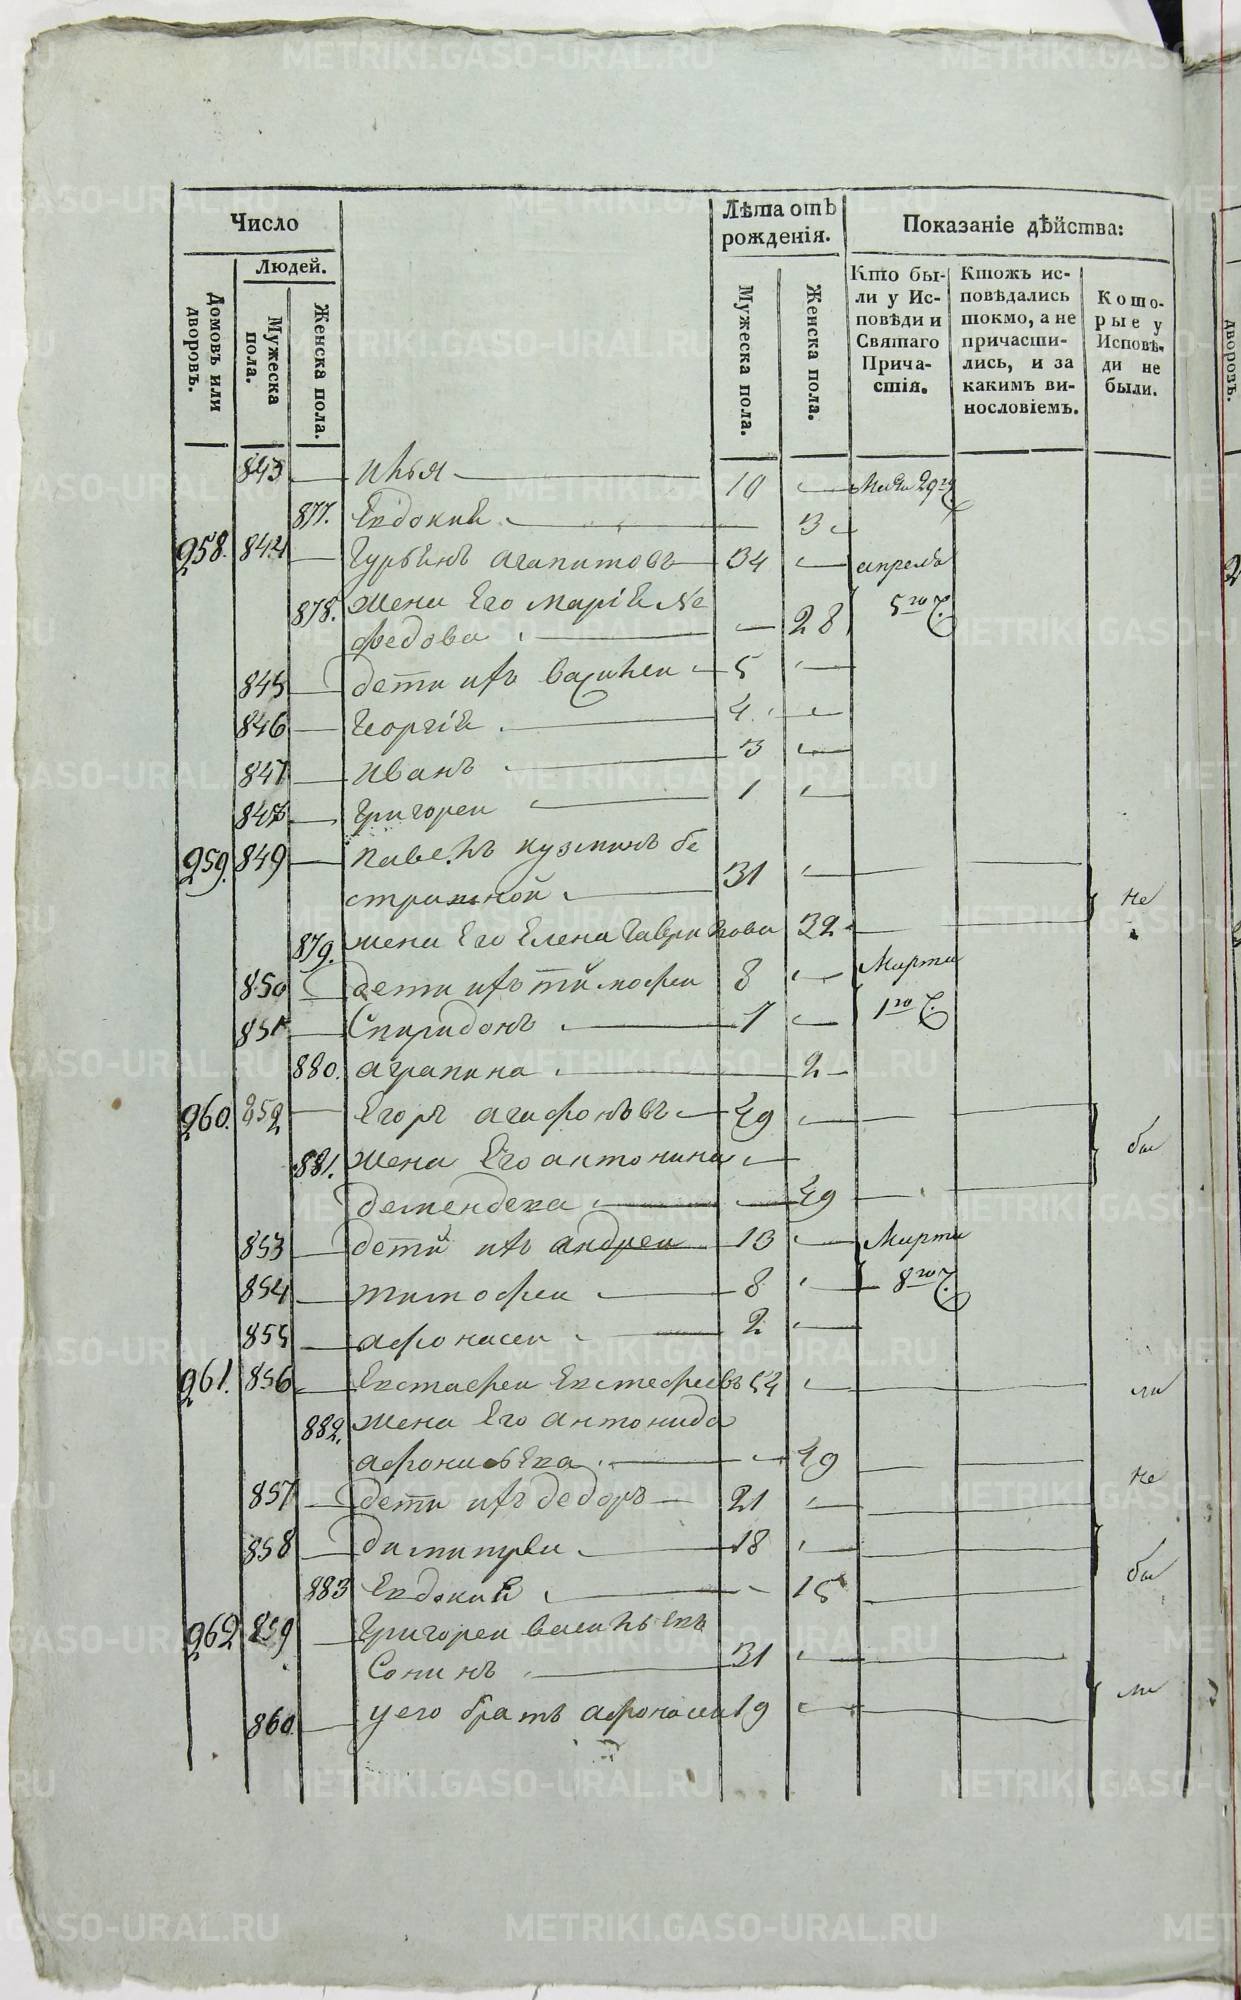 Число
Людей.
Домовъ или дворовъ.
Мужеска пола.
Женска пола.
Лѣта отъ рожденія.
Мужеска пола.
Женска пола.
Показаніе дѣйства:
Кто были у Исповѣди и Святаго Причастія.
Ктожъ исповѣдались токмо, а не причастились, и за какимъ винословіемъ.
Которые у Исповѣди не были.
843 Илья 10 29го
877. Евдокия 3
958. 844 Гурьенъ агапитовъ 34 апреля
878. жена Его марія Не
федова 28 5го Ч.
845 дети ихъ василеи 5
846 Георгій 4
847 Иванъ 3
848 Григореи 1
959. 849 павелъ кузминъ бе
31 не
879. жена Его Елена Гаврилова 32
850 дети ихъ тимофеи 8 Марта
851 Спиридонъ 7 1го Ч.
880. аграпина 2
960. 852 Егоръ агафоновъ 49
881. жена Его антонина бы
49
853 дети ихъ андреи 13 Марта
854 тимофеи 8 8го Ч.
855 афонасеи 2
961. 856 Евстафеи Евстефеевъ 54 ли
882. жена Его антонида
49
857 дети ихъ федоръ 21 не
858 димитреи 18
883 Евдокия 15 бы
962 859 Григореи василь евъ
Сонинъ 31
860. у его братъ афонасеи 19 ли
дворовъ.
METRIKI.GASO-URAL.RU